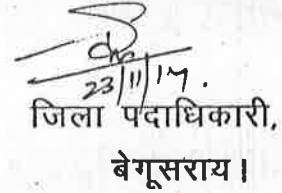 23/11/17.
जिला पदाधिकारी,
बेगूसराय।